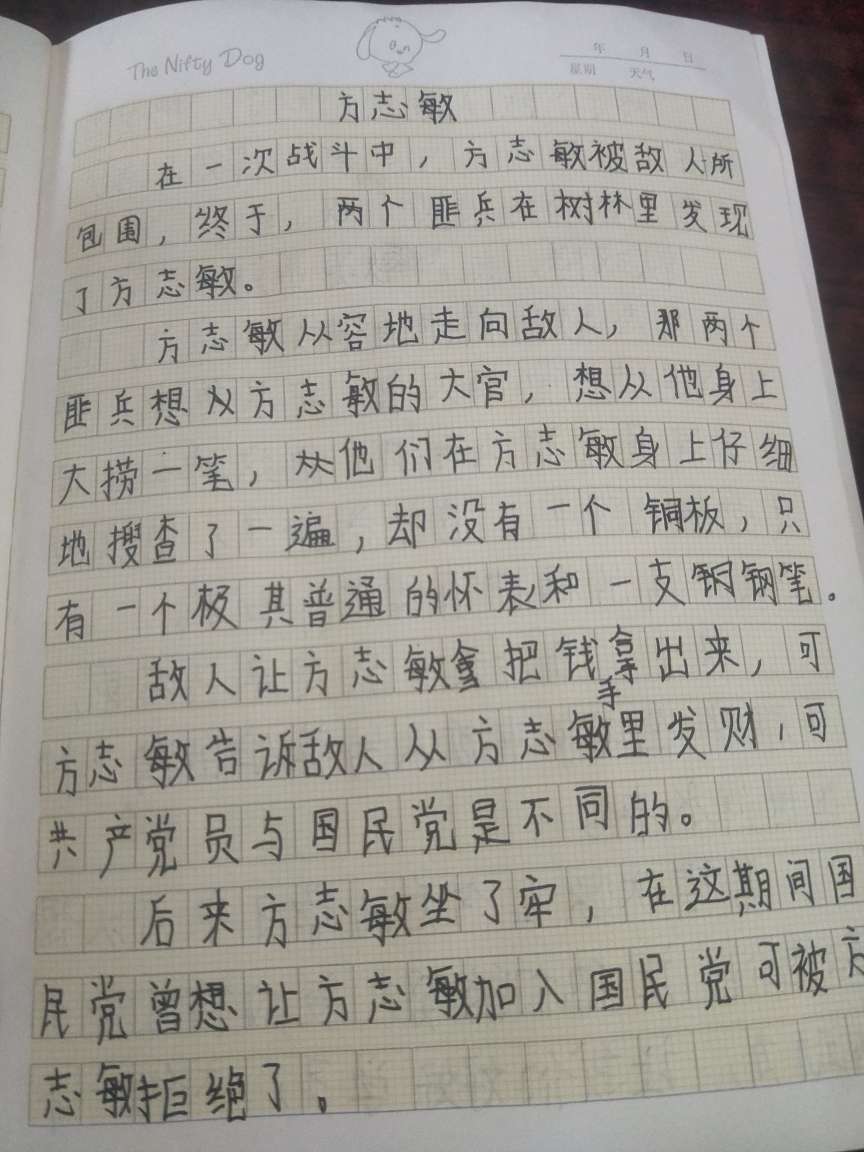 The Nifty Dog
年 月 日
星期 天气
方志敏
在一次战斗中，方志敏被敌人所
包围，终于，两个匪兵在树林里发现
了方志敏。
方志敏从容地走向敌人，那两个
匪兵想从方志敏的大官，想从他身上
大捞一笔，从他们在方志敏身上仔细
地搜查了一遍，却没有一个铜板，只
有一个极其普通的怀表和一支钢钢笔。
敌人让方志敏拿把钱拿出来，可
方志敏告诉敌人从方志敏手里发财，可
共产党员与国民党是不同的。
后来方志敏坐了牢，在这期间国
民党曾想让方志敏加入国民党可被方
志敏拒绝了。